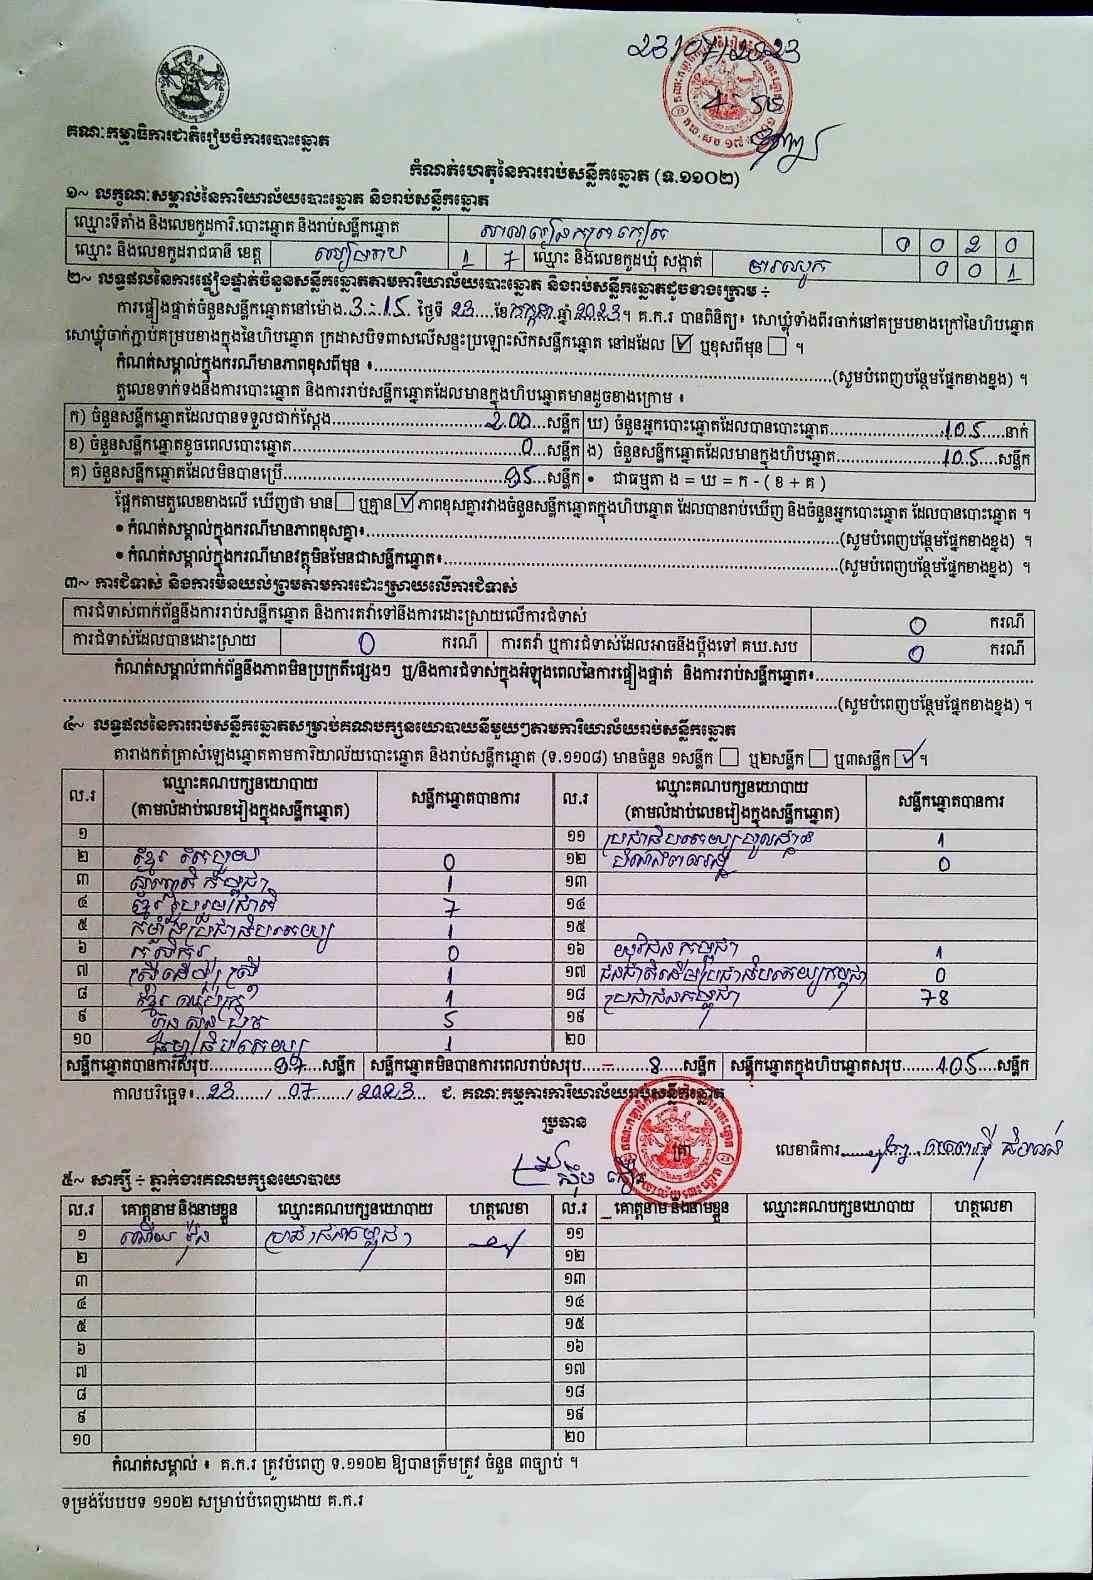 23/07/2023
គណៈកម្មាធិការជាតិរៀបចំការបោះឆ្នោត
កំណត់ហេតុនៃការរាប់សន្លឹកឆ្នោត (ទ.១១០២)
១~ លក្ខណៈសម្គាល់នៃការិយាល័យបោះឆ្នោត និងរាប់សន្លឹកឆ្នោត
ឈ្មោះទីតាំង និងលេខកូដការិ.បោះឆ្នោត និងរាប់សន្លឹកឆ្នោត 0 0 2 0
ឈ្មោះ និងលេខកូដរាជធានី ខេត្ត សៀមរាប 1 7 ឈ្មោះ និងលេខកូដឃុំ សង្កាត់ 0 0 1
២~ លទ្ធផលនៃការផ្ទៀងផ្ទាត់ចំនួនសន្លឹកឆ្នោតតាមការិយាល័យបោះឆ្នោត និងរាប់សន្លឹកឆ្នោតដូចខាងក្រោម ÷
ការផ្ទៀងផ្ទាត់ចំនួនសន្លឹកឆ្នោតនៅម៉ោង 3:15 ថ្ងៃទី 23 ខែ កក្កដា ឆ្នាំ 2023។ គ.ក.រ បានពិនិត្យ៖ សោឃ្លុំទាំងពីរចាក់នៅគម្របខាងក្រៅនៃហិបឆ្នោត
សោឃ្លុំចាក់ភ្ជាប់គម្របខាងក្នុងនៃហិបឆ្នោត ក្រដាសបិទពាសលើសន្ទះប្រឡោះសិកសន្លឹកឆ្នោត នៅដដែល ☑ ឬខុសពីមុន ☐ ។
កំណត់សម្គាល់ក្នុងករណីមានភាពខុសពីមុន ៖......(សូមបំពេញបន្ថែមផ្នែកខាងខ្នង) ។
តួលេខទាក់ទងនឹងការបោះឆ្នោត និងការរាប់សន្លឹកឆ្នោតដែលមានក្នុងហិបឆ្នោតមានដូចខាងក្រោម ៖
ក) ចំនួនសន្លឹកឆ្នោតដែលបានទទួលជាក់ស្តែង......200...សន្លឹក ឃ) ចំនួនអ្នកបោះឆ្នោតដែលបានបោះឆ្នោត......105......នាក់
ខ) ចំនួនសន្លឹកឆ្នោតខូចពេលបោះឆ្នោត......0...សន្លឹក ង) ចំនួនសន្លឹកឆ្នោតដែលមានក្នុងហិបឆ្នោត......105....សន្លឹក
គ) ចំនួនសន្លឹកឆ្នោតដែលមិនបានប្រើ......95...សន្លឹក • ជាធម្មតា ង = ឃ = ក - ( ខ + គ )
ផ្អែកតាមតួលេខខាងលើ ឃើញថា មាន ☐ ឬគ្មាន ☑ ភាពខុសគ្នារវាងចំនួនសន្លឹកឆ្នោតក្នុងហិបឆ្នោត ដែលបានរាប់ឃើញ និងចំនួនអ្នកបោះឆ្នោត ដែលបានបោះឆ្នោត ។
• កំណត់សម្គាល់ក្នុងករណីមានភាពខុសគ្នា៖......(សូមបំពេញបន្ថែមផ្នែកខាងខ្នង) ។
• កំណត់សម្គាល់ក្នុងករណីមានវត្ថុមិនមែនជាសន្លឹកឆ្នោត៖......(សូមបំពេញបន្ថែមផ្នែកខាងខ្នង) ។
៣~ ការជំទាស់ និងការមិនយល់ព្រមតាមការដោះស្រាយលើការជំទាស់
ការជំទាស់ពាក់ព័ន្ធនឹងការរាប់សន្លឹកឆ្នោត និងការតវ៉ាទៅនឹងការដោះស្រាយលើការជំទាស់ 0 ករណី
ការជំទាស់ដែលបានដោះស្រាយ 0 ករណី ការតវ៉ា ឬការជំទាស់ដែលអាចនឹងប្តឹងទៅ គឃ.សប 0 ករណី
កំណត់សម្គាល់ពាក់ព័ន្ធនឹងភាពមិនប្រក្រតីផ្សេងៗ ឬ/និងការជំទាស់ក្នុងអំឡុងពេលនៃការផ្ទៀងផ្ទាត់ និងការរាប់សន្លឹកឆ្នោត៖......
......(សូមបំពេញបន្ថែមផ្នែកខាងខ្នង) ។
៤~ លទ្ធផលនៃការរាប់សន្លឹកឆ្នោតសម្រាប់គណបក្សនយោបាយនីមួយៗតាមការិយាល័យរាប់សន្លឹកឆ្នោត
តារាងកត់ត្រាសំឡេងឆ្នោតតាមការិយាល័យបោះឆ្នោត និងរាប់សន្លឹកឆ្នោត (ទ.១១០៨) មានចំនួន ១សន្លឹក ☐ ឬ២សន្លឹក ☐ ឬ៣សន្លឹក ☑ ។
ល.រ ឈ្មោះគណបក្សនយោបាយ (តាមលំដាប់លេខរៀងក្នុងសន្លឹកឆ្នោត) សន្លឹកឆ្នោតបានការ ល.រ ឈ្មោះគណបក្សនយោបាយ (តាមលំដាប់លេខរៀងក្នុងសន្លឹកឆ្នោត) សន្លឹកឆ្នោតបានការ
១ ១១ ប្រជាធិបតេយ្យមូលដ្ឋាន 1
២ ខ្មែរ 0 ១២ 0
៣ កម្ពុជា 1 ១៣
៤ ខ្មែររួបរួមជាតិ 7 ១៤
៥ កម្លាំងប្រជាធិបតេយ្យ 1 ១៥
៦ កសិករ 0 ១៦ យុវជនកម្ពុជា 1
៧ ស្រ្តីដើម្បីស្រ្តី 1 ១៧ ជនជាតិដើមប្រជាធិបតេយ្យកម្ពុជា 0
៨ ខ្មែរ 1 ១៨ ប្រជាជនកម្ពុជា 78
៩ ហ៊្វុនស៊ិនប៉ិច 5 ១៩
១០ ធម្មាធិបតេយ្យ 1 ២០
សន្លឹកឆ្នោតបានការសរុប......97....សន្លឹក សន្លឹកឆ្នោតមិនបានការពេលរាប់សរុប......8....សន្លឹក សន្លឹកឆ្នោតក្នុងហិបឆ្នោតសរុប......105....សន្លឹក
កាលបរិច្ឆេទ៖..23....../..07....../.2023... ជ. គណៈកម្មការការិយាល័យរាប់សន្លឹកឆ្នោត
ប្រធាន
លេខាធិការ
៥~ សាក្សី ÷ ភ្នាក់ងារគណបក្សនយោបាយ
ល.រ គោត្តនាម និងនាមខ្លួន ឈ្មោះគណបក្សនយោបាយ ហត្ថលេខា ល.រ គោត្តនាម និងនាមខ្លួន ឈ្មោះគណបក្សនយោបាយ ហត្ថលេខា
១ ប្រជាជនកម្ពុជា ១១
២ ១២
៣ ១៣
៤ ១៤
៥ ១៥
៦ ១៦
៧ ១៧
៨ ១៨
៩ ១៩
១០ ២០
កំណត់សម្គាល់ ៖ គ.ក.រ ត្រូវបំពេញ ទ.១១០២ ឱ្យបានត្រឹមត្រូវ ចំនួន ៣ច្បាប់ ។
ទម្រង់បែបបទ ១១០២ សម្រាប់បំពេញដោយ គ.ក.រ